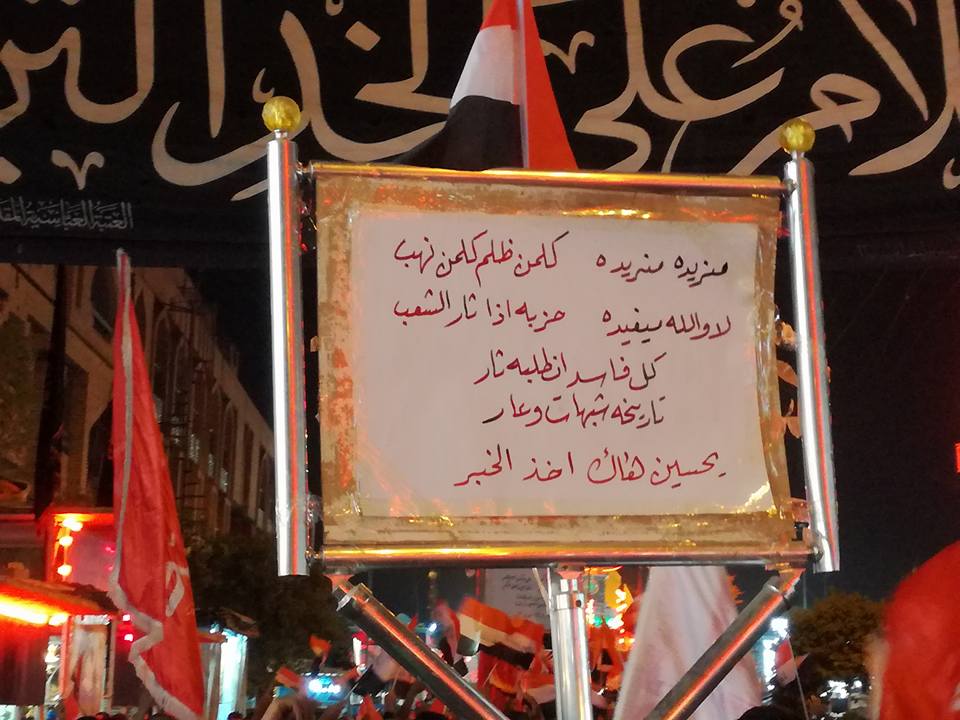 لام على الخد التر
العتبة العباسية المقد
منريده منريده كلمن ظلم كلمن نهب
لا والله ميفيده حزبه اذا ثار الشعب
كل فاسد انطلبه ثار
تاريخه شبهات وعار
يحسين هاك اخذ الخبر